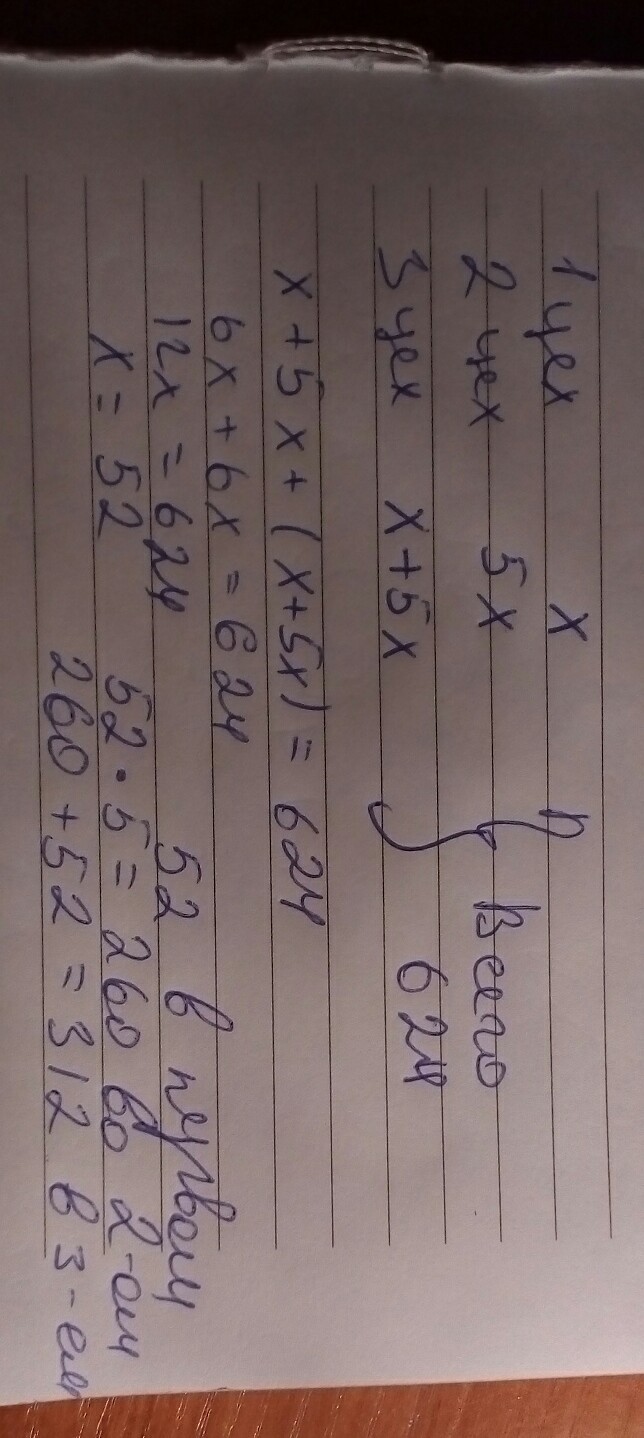 1 цех x
2 цех 5x } Всего
3 цех x+5x 624
x + 5x + (x+5x) = 624
6x + 6x = 624
12x = 624 52 в первом
x = 52 52 · 5 = 260 во 2-ом
260 + 52 = 312 в 3-ем